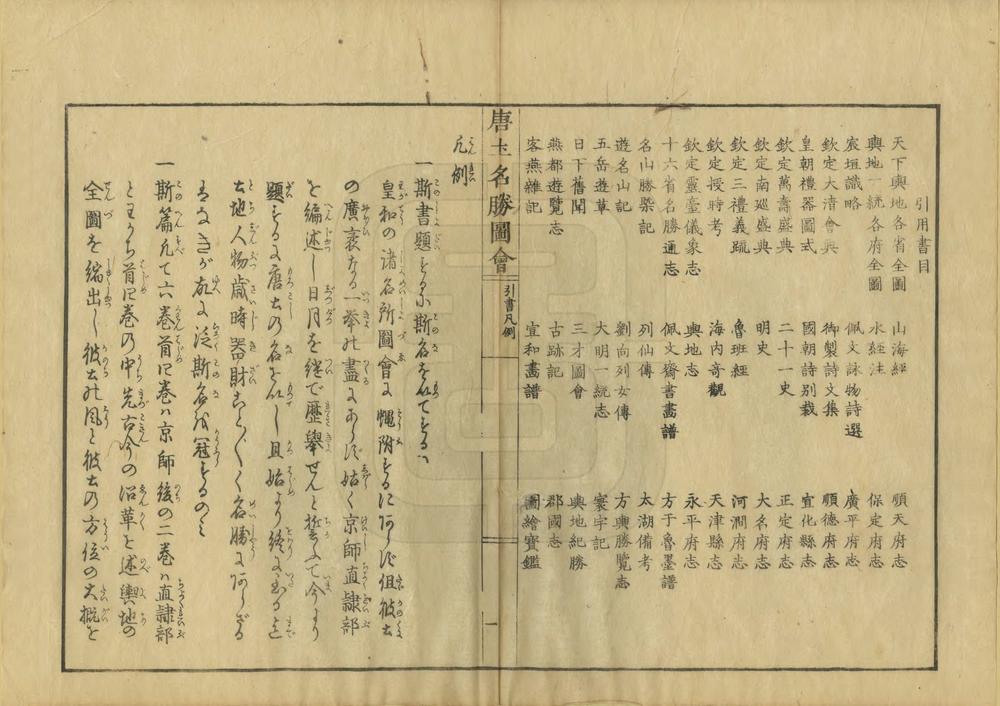 引用書目
天下輿地各省全圖　山海經　順天府志
輿地一統各府全圖　水經注　保定府志
宸垣識略　佩文詠物詩選　廣平府志
欽定大清會典　御製詩文集　順德府志
皇朝禮器圖式　國朝詩別裁　宣化縣志
欽定萬壽盛典　二十一史　正定府志
欽定南巡盛典　明史　大名府志
欽定三禮義疏　魯班經　河澗府志
欽定授時考　海内奇觀　天津縣志
欽定靈臺儀象志　輿地志　永平府志
十六省名勝通志　佩文齋書畫譜　方于魯墨譜
名山勝槩記　列仙傳　太湖備考
遊名山記　劉向列女傳　方輿勝覽志
五岳遊草　大明一統志　寰宇記
日下舊聞　三才圖會　輿地紀勝
燕都遊覽志　古跡記　郡國志
客燕雜記　宣和畫譜　圖繪寶鑑
唐土名勝圖會　引書凡例　一
凡例
一斯書題するに斯名を以てするハ
皇和の諸名所圖會に
の廣袤なる一挙に盡にあらず姑く京師直隷部
を編述し日月を継で歴擧せんと誓ふて今より
題するに唐土の名を以し且始より終に至る迄
土地人物歳時器財
斯篇凡て六巻首四巻ハ京師後の二巻ハ直隷部
とすわち首四巻の中先古今の沿革を述輿地の
全圖を縮出し彼土の風と彼土の方位の大概を